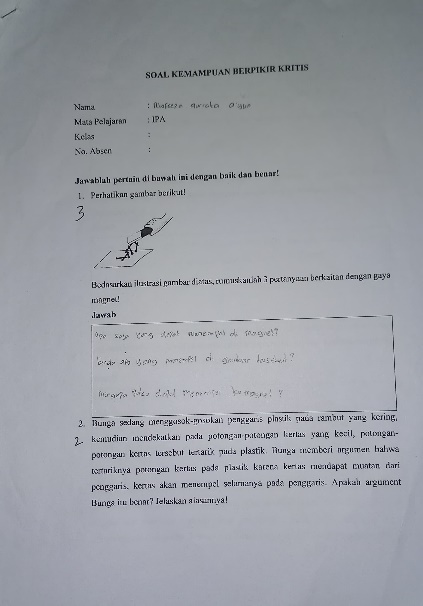 SOAL KEMAMPUAN BERPIKIR KRITIS
Nama :
Mata Pelajaran : IPA
Kelas :
No. Absen :
Jawablah pertain di bawah ini dengan baik dan benar!
1. Perhatikan gambar berikut!
3
Berdasarkan ilustrasi gambar diatas, rumuskanlah 3 pertanyaan berkaitan dengan gaya
magnet!
Jawab
apa saja yang dapat menempel di magnet?
yang menempel di gambar tersebut?
dapat menempel ?
2. Bunga sedang menggosok-gosokan penggaris plastik pada rambut yang kering,
2 kemudian mendekatkan pada potongan-potongan kertas yang kecil, potongan-
potongan kertas tersebut tertarik pada plastik. Bunga memberi argumen bahwa
tertariknya potongan kertas pada plastik karena kertas mendapat muatan dari
penggaris, kertas akan menempel selamanya pada penggaris. Apakah argument
Bunga itu benar? Jelaskan alasannya!